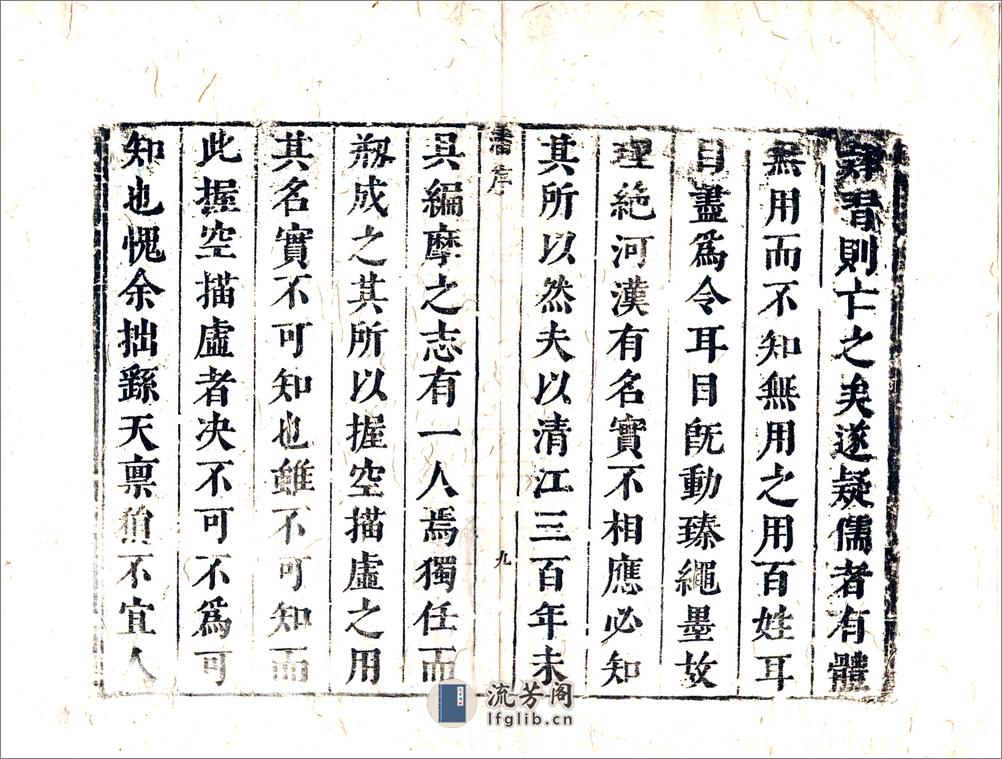 習則亡之矣遂疑儒者有體
無用而不知無用之用百姓耳
目盡爲令耳目旣動臻繩墨故
理絶河漢有名實不相應必知
其所以然夫以清江三百年未
潘序
九
具編摩之志有一人焉獨任而
剏成之其所以握空描虛之用
其名實不可知也雖不可知而
此握空描虛者决不可不爲可
知也愧余拙繇天禀猶不宜人
流芳阁
lfglib.cn